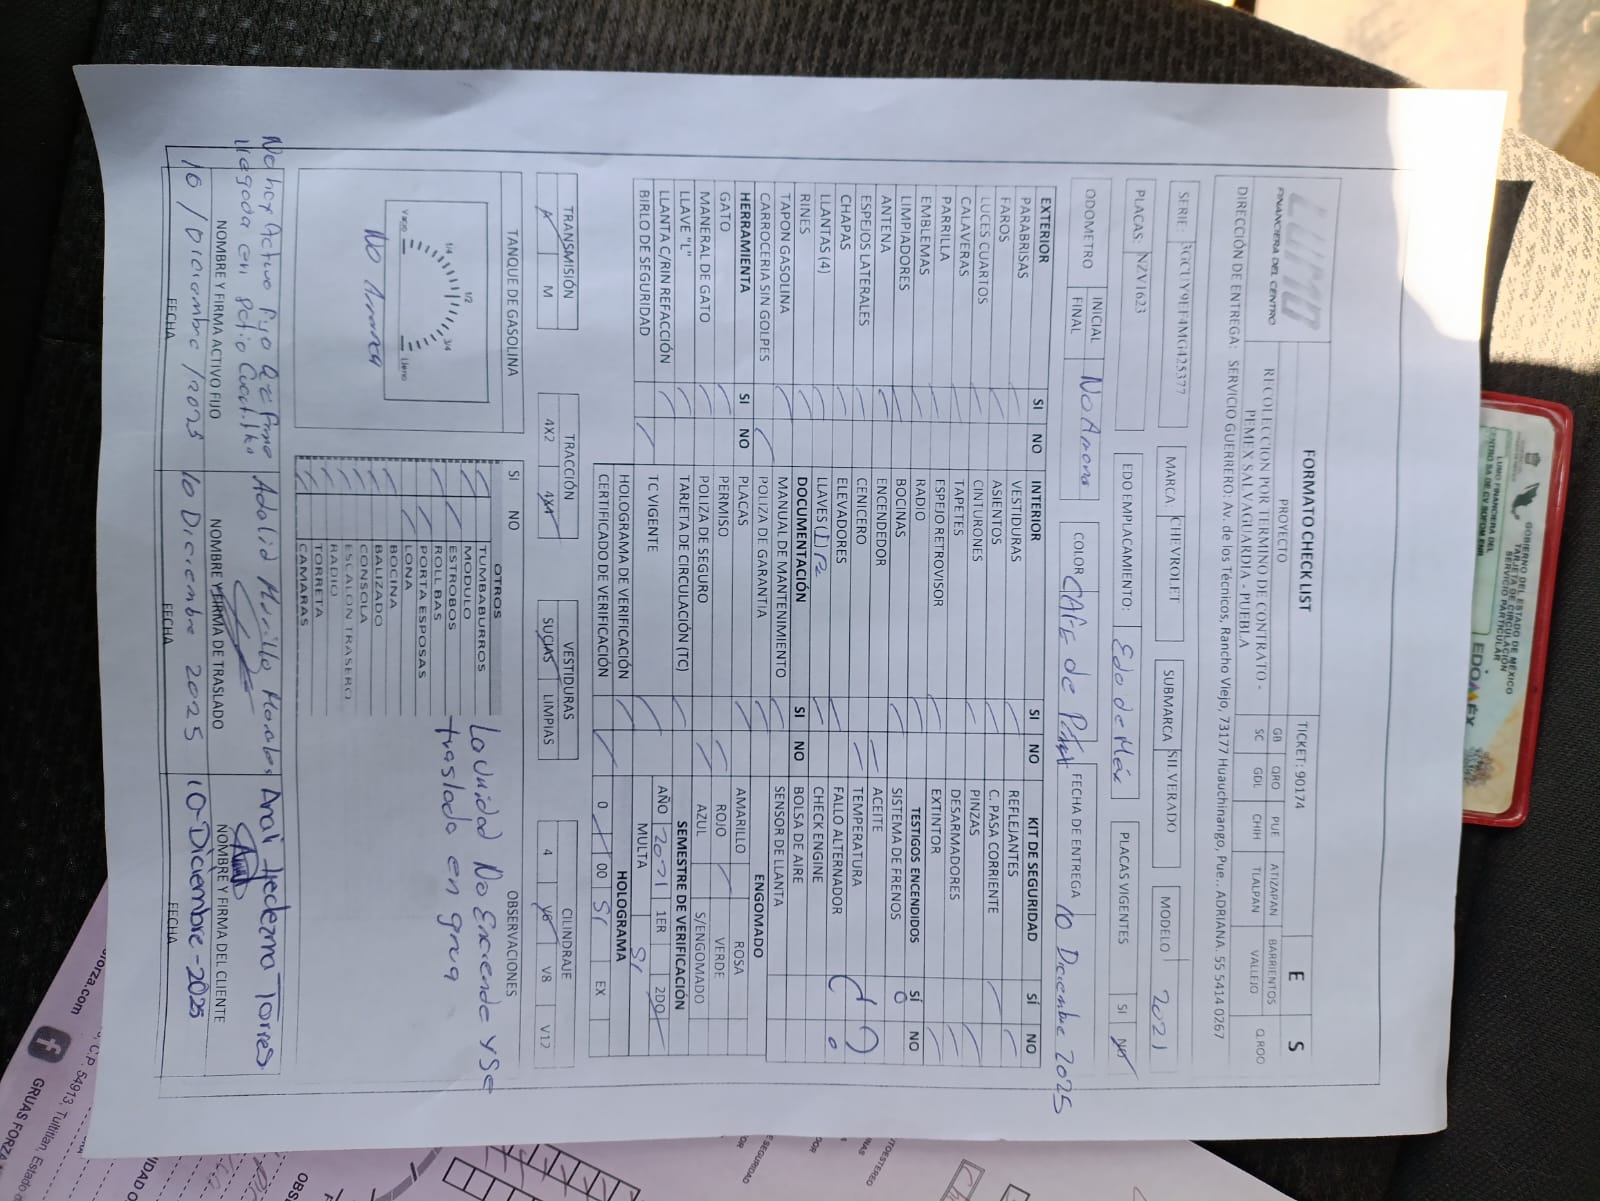 LUMO
FINANCIERA DEL CENTRO
FORMATO CHECK LIST
TICKET: 90174
E S
PROYECTO
RECOLECCION POR TERMINO DE CONTRATO -
PEMEX SALVAGUARDIA - PUEBLA
GB QRO PUE ATIZAPAN BARRIENTOS Q.ROO
SC GDL CHIH TLALPAN VALLEJO
DIRECCIÓN DE ENTREGA: SERVICIO GUERRERO: Av. de los Técnicos, Rancho Viejo, 73177 Huauchinango, Pue.. ADRIANA. 55 5414 0267
SERIE: 3GCUY9EF4MG425377 MARCA: CHEVROLET SUBMARCA SILVERADO MODELO 2021
PLACAS: NZV1623 EDO EMPLACAMIENTO: Edo de Méx PLACAS VIGENTES SI NO
ODOMETRO INICIAL FINAL COLOR CAFE de FECHA DE ENTREGA 10 Diciembre 2025
EXTERIOR SI NO
PARABRISAS
FAROS
LUCES CUARTOS
CALAVERAS
PARRILLA
EMBLEMAS
LIMPIADORES
ANTENA
ESPEJOS LATERALES
CHAPAS
LLANTAS (4)
RINES
TAPON GASOLINA
CARROCERIA SIN GOLPES
HERRAMIENTA SI NO
GATO
MANERAL DE GATO
LLAVE "L"
LLANTA C/RIN REFACCIÓN
BIRLO DE SEGURIDAD
INTERIOR SI NO
VESTIDURAS
ASIENTOS
CINTURONES
TAPETES
ESPEJO RETROVISOR
RADIO
BOCINAS
ENCENDEDOR
CENICERO
ELEVADORES
LLAVES
DOCUMENTACIÓN SI NO
MANUAL DE MANTENIMIENTO
POLIZA DE GARANTIA
PLACAS
PERMISO
POLIZA DE SEGURO
TARJETA DE CIRCULACIÓN (TC)
TC VIGENTE
HOLOGRAMA DE VERIFICACIÓN
CERTIFICADO DE VERIFICACIÓN
KIT DE SEGURIDAD SÍ NO
REFLEJANTES
C. PASA CORRIENTE
PINZAS
DESARMADORES
EXTINTOR
TESTIGOS ENCENDIDOS SÍ NO
SISTEMA DE FRENOS
ACEITE
TEMPERATURA
FALLO ALTERNADOR
CHECK ENGINE
BOLSA DE AIRE
SENSOR DE LLANTA
ENGOMADO
AMARILLO ROSA
ROJO VERDE
AZUL S/ENGOMADO
SEMESTRE DE VERIFICACIÓN
AÑO 2021 1ER 2DO
MULTA SI
HOLOGRAMA
0 00 SI EX
TRANSMISIÓN
A M
TRACCIÓN
4X2 4X4
VESTIDURAS
SUCIAS LIMPIAS
CILINDRAJE
4 V6 V8 V12
TANQUE DE GASOLINA
Vacio 1/4 1/2 3/4 Lleno
No Arranca
SI NO OTROS
TUMBABURROS
MODULO
ESTROBOS
ROLL BAS
PORTA ESPOSAS
LONA
BOCINA
BALIZADO
CONSOLA
ESCALON TRASERO
RADIO
TORRETA
CAMARAS
OBSERVACIONES
La unidad No Enciende y se
traslada en grua
No hay Activo Fijo
llegada en patio
NOMBRE Y FIRMA ACTIVO FIJO
10 / Diciembre / 2025
FECHA
Adolid Murillo Morales
NOMBRE Y FIRMA DE TRASLADO
10 Diciembre 2025
FECHA
Anai Ledezma Torres
NOMBRE Y FIRMA DEL CLIENTE
10-Diciembre-2025
FECHA
GOBIERNO DEL ESTADO DE MÉXICO
TARJETA DE CIRCULACIÓN
SERVICIO PARTICULAR
LUMO FINANCIERA DEL
CENTRO SA DE CV SOFOM ENR
EDOMÉX
forza.com
C.P. 54913, Tultitlan, Estado
GRUAS FORZA